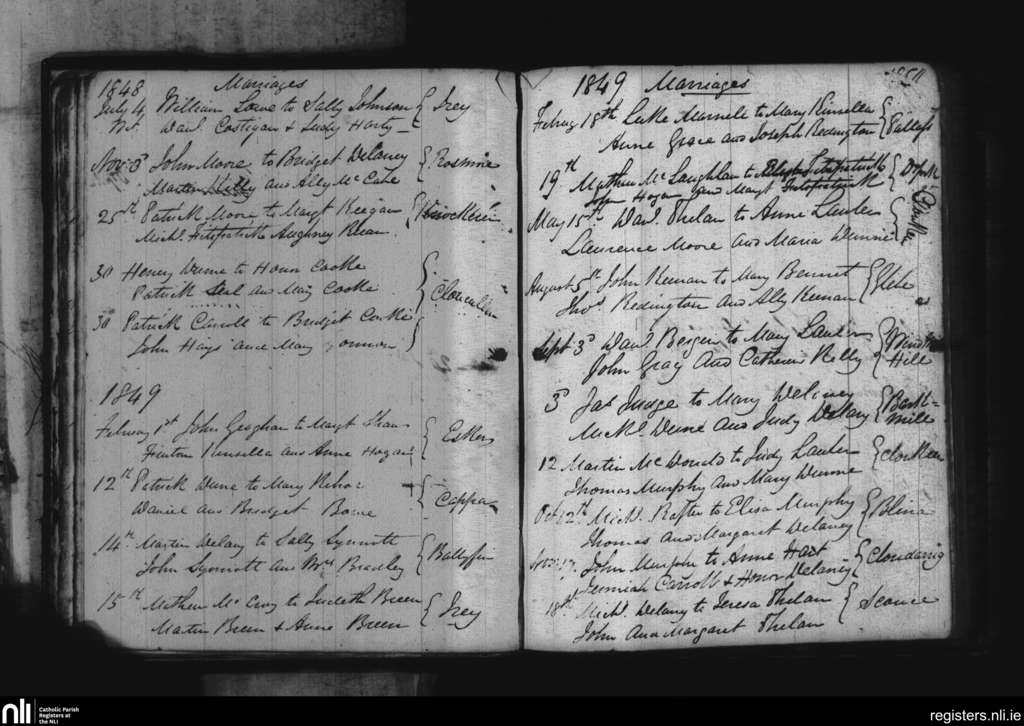 1848 Marriages
July 4 William Lowe to Sally Johnson { Irey
Danl. Costigan & Judy Harty
Nov. 3d John Moore to Bridget Delaney { Rosmine
Martin and Ally McCabe
25th Patrick Moore to Margt Keegan {
Michl. Fitzpatrick
30 Henry Dunne to Honor Cooke
Patrick and Mary Cooke
30 Patrick Carroll to Bridget Cooke
John Hays and Mary Connor
1849
February 1st John Geoghan to Margt { Esker
Fintan Kinsella and Anne Hogan
12th Patrick Dunne to Mary { Cappa
Daniel and Bridget
14th Martin Delany to Sally Synnott { Ballyfin
John Synnott and Mrs Bradley
15th Mathew McEvoy to Judeth Breen { Irey
Martin Breen & Anne Breen
1849 Marriages
Februy 18th Luke to Mary Kinsella
Anne Grace and Joseph Redington
19th Mathew McLaughlan to Fitzpatrick
Hogan and Margt Fitzpatrick
May 15th Danl. Phelan to Anne Lawler
Laurence Moore and Maria Dunne
August 5th John Keenan to Mary Bennet { Glebe
Thos. Redington and Ally Keenan
Sept 3d Danl. Bergin to Mary Lawlor
John Gray and Catherine Kelly Hill
3d Jas Judge to Mary Delaney
Michl. Dunne and Judy Delany Mill
12 Martin McDonald to Judy Lawler
Thomas Murphy and Mary Dunne
Oct 12th Michl. Rafter to Elisa Murphy
Thomas and Margaret Delaney
Novr. 17 John Murphy to Anne Hart { Clondarrig
Jeremiah Carroll & Honor Delaney
18th Michl. Delany to Teresa Phelan { Sconce
John and Margaret Phelan
nli Catholic Parish
Registers at
the NLI
registers.nli.ie